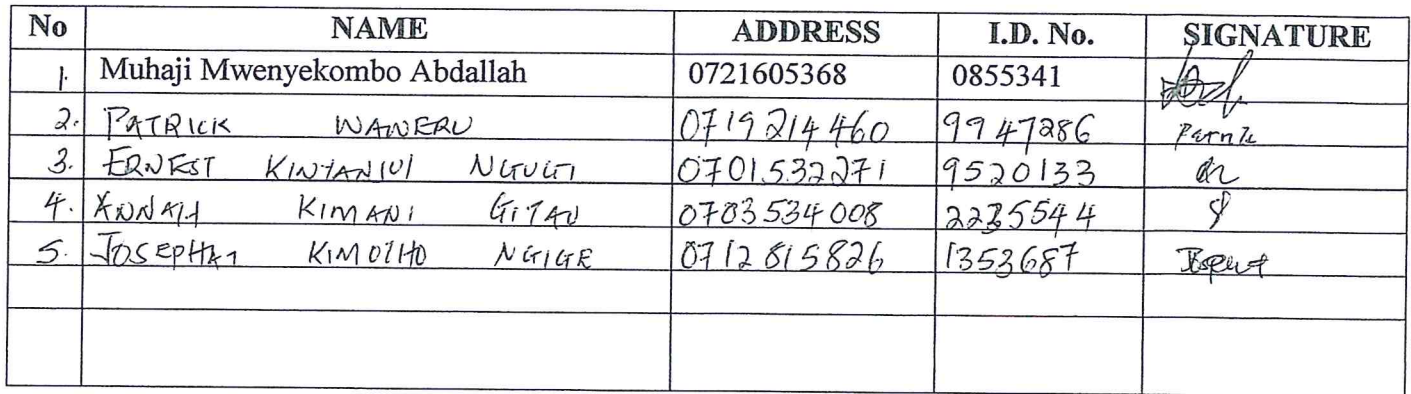 No NAME ADDRESS I.D. No. SIGNATURE
1. Muhaji Mwenyekombo Abdallah 0721605368 0855341
2. PATRICK WAWERU 0719214460 9947286
3. ERNEST NGUGI 0701532271 9520133
4. KIMANI GITAU 0703534008 2235544
5. JOSEPHAT KIMOTHO NGIGE 0712815826 1353687